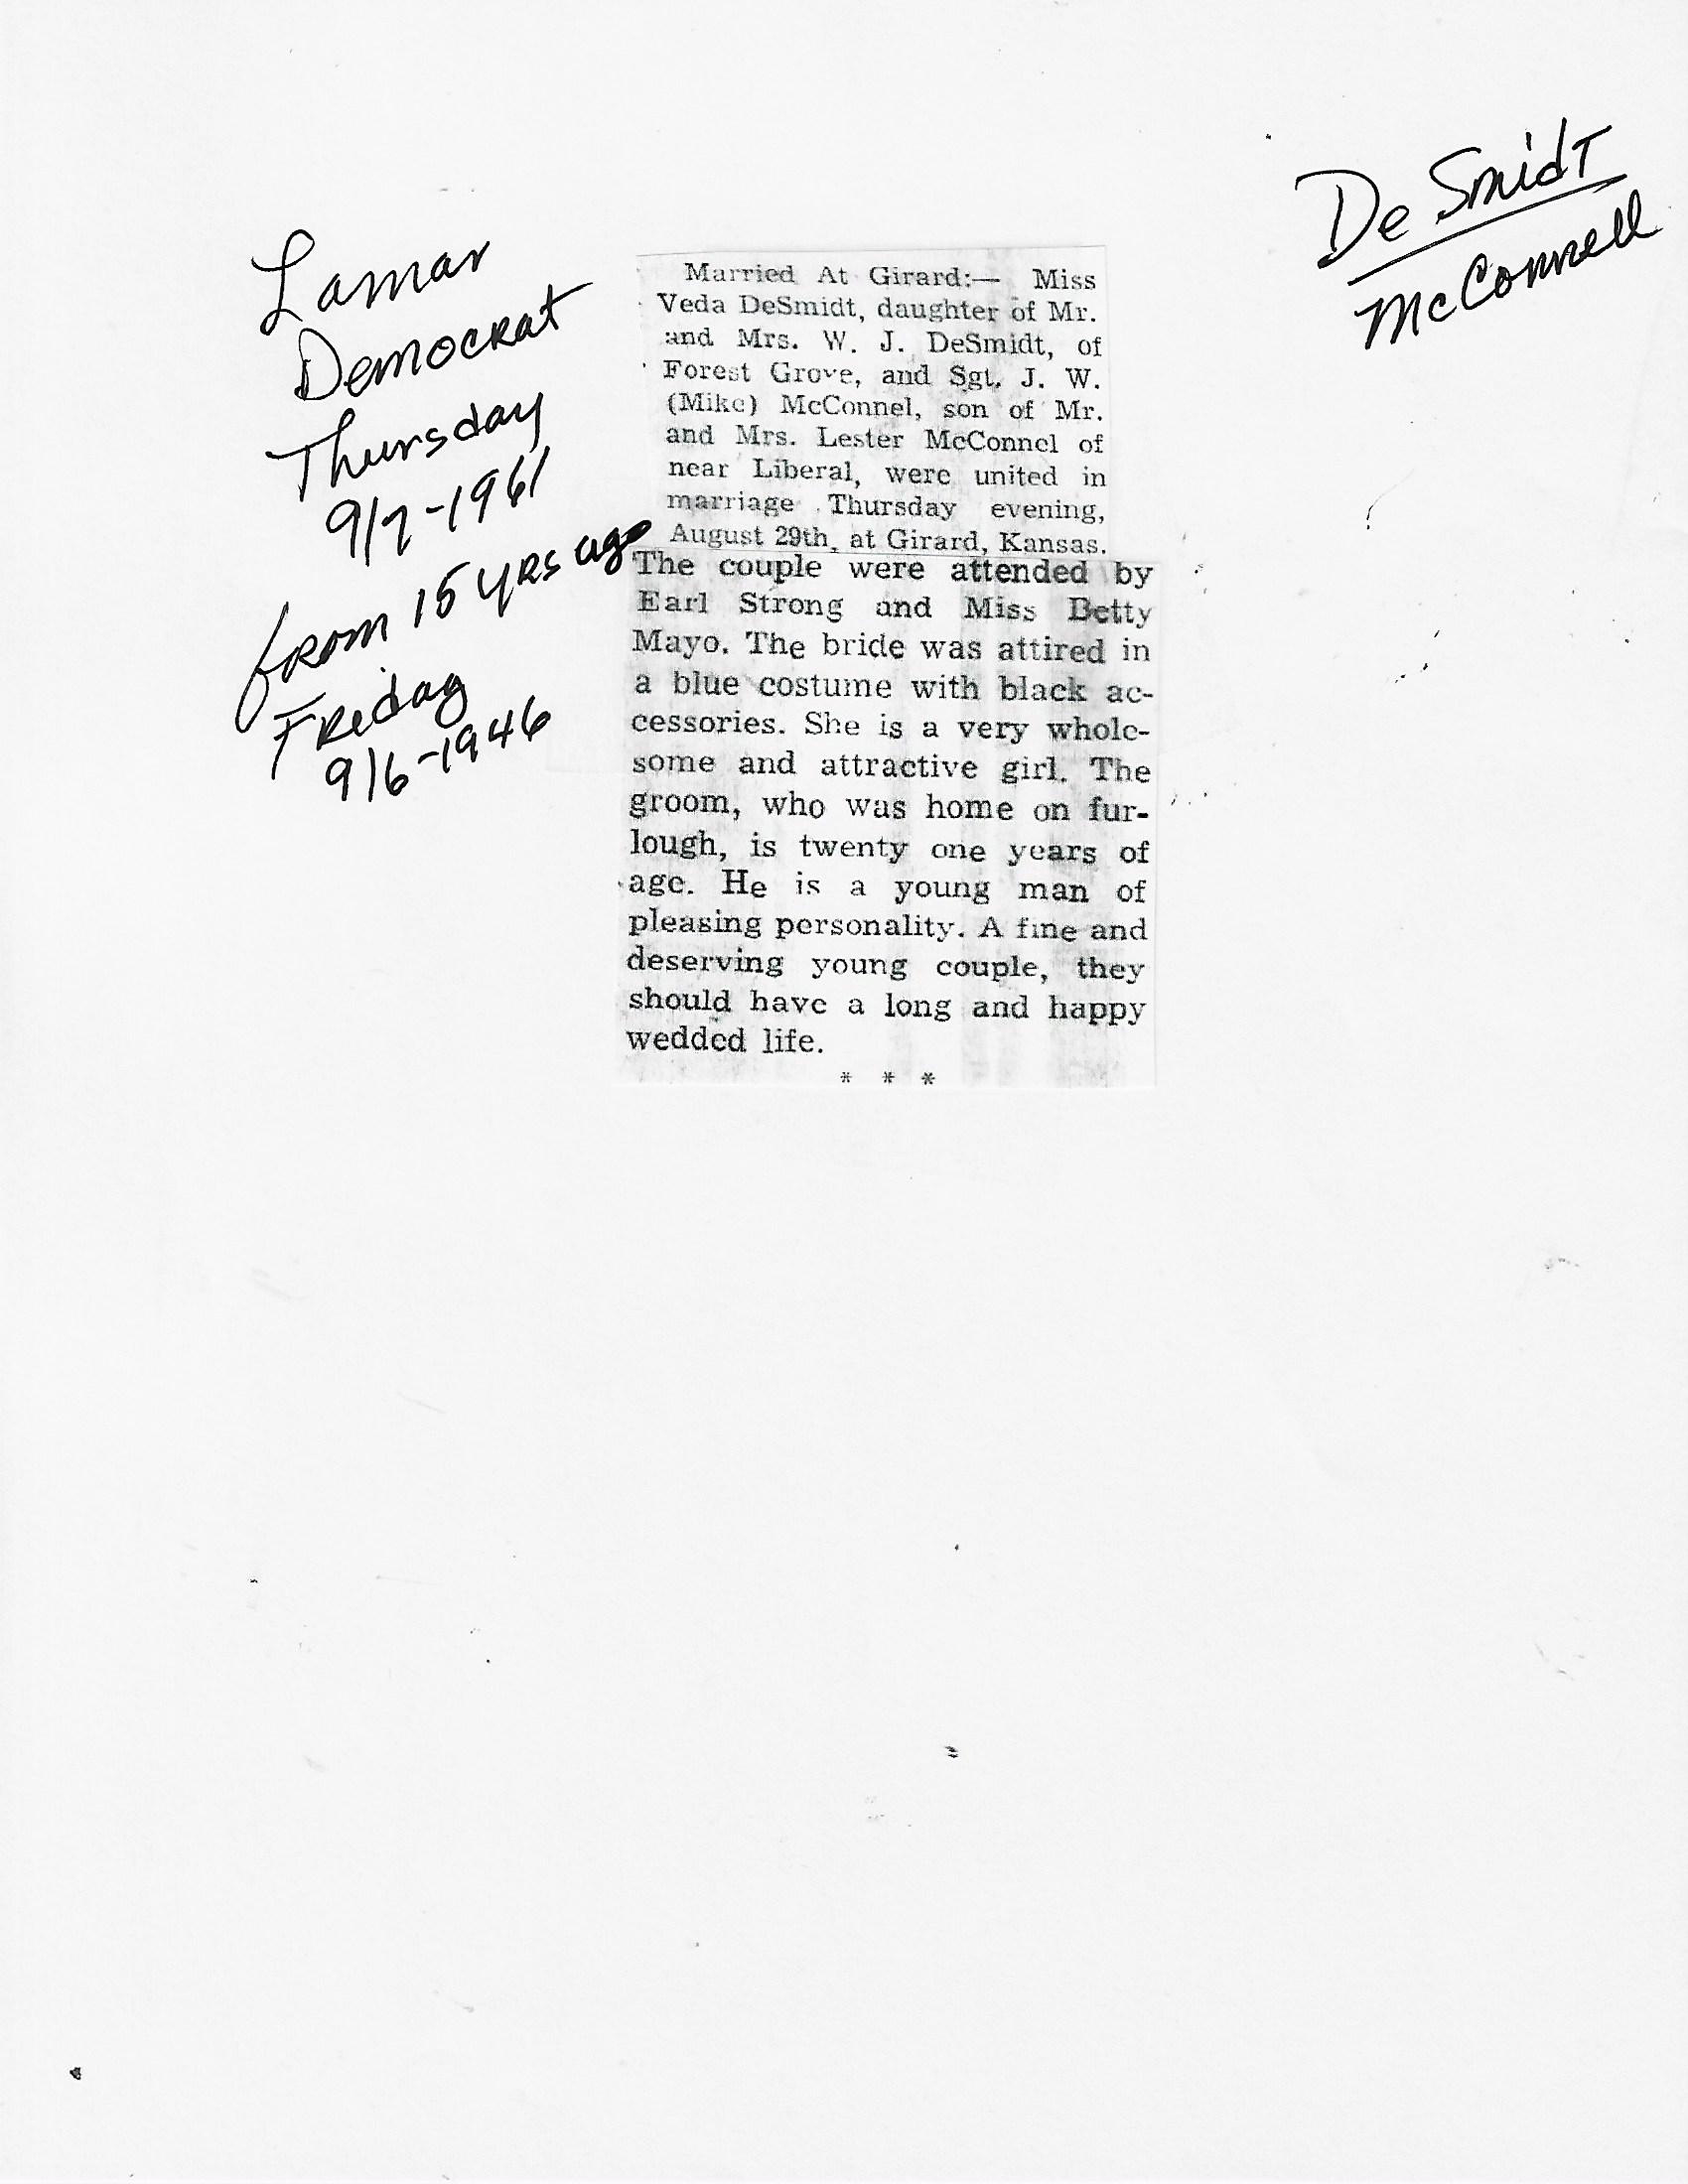 De Smidt
McConnell
Lamar
Democrat
Thursday
9/7-1961
from 15 yrs ago
Friday
9/6-1946
Married At Girard:— Miss
Veda DeSmidt, daughter of Mr.
and Mrs. W. J. DeSmidt, of
Forest Grove, and Sgt. J. W.
(Mike) McConnel, son of Mr.
and Mrs. Lester McConnel of
near Liberal, were united in
marriage Thursday evening,
August 29th, at Girard, Kansas.
The couple were attended by
Earl Strong and Miss Betty
Mayo. The bride was attired in
a blue costume with black ac-
cessories. She is a very whole-
some and attractive girl. The
groom, who was home on fur-
lough, is twenty one years of
age. He is a young man of
pleasing personality. A fine and
deserving young couple, they
should have a long and happy
wedded life.
* * *